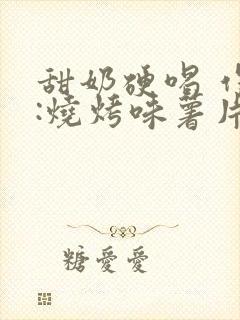 甜奶硬唱
:燒烤味薯片
糖愛愛